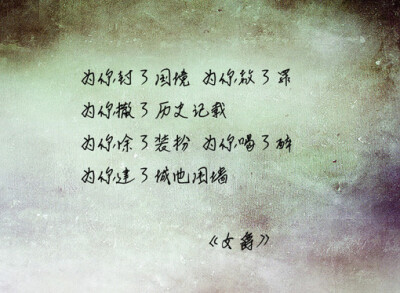 为你封了国境 为你赦了罪
为你撤了历史记载
为你涂了装扮 为你喝了醉
为你建了城池围墙
《女爵》